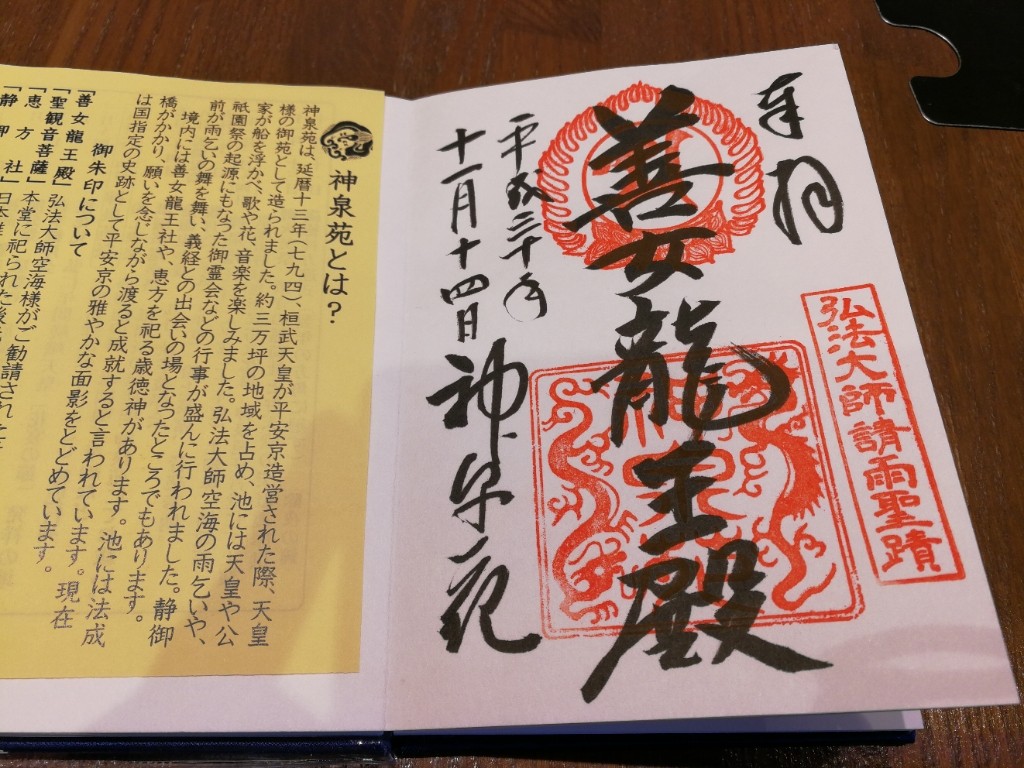 奉拝
弘法大師請雨聖蹟
善女龍王殿
平成三十年
十一月十四日 神泉苑
神泉苑とは?
神泉苑は、延暦十三年(七九四)、桓武天皇が平安京造営された際、天皇
様の御苑として造られました。約三万坪の地域を占め、池には天皇や公
家が船を浮かべ、歌や花、音楽を楽しみました。弘法大師空海の雨乞いや、
祇園祭の起源にもなった御霊会などの行事が盛んに行われました。静御
前が雨乞いの舞を舞い、義経との出会いの場となったところでもあります。
境内には善女龍王社や、恵方を祀る歳徳神があります。池には法成
橋がかかり、願いを念じながら渡ると成就すると言われています。現在
は国指定の史跡として平安京の雅やかな面影をとどめています。
御朱印について
「善女龍王殿」弘法大師空海様がご勧請された
「聖観音菩薩」本堂に祀られた
「恵方社」日本